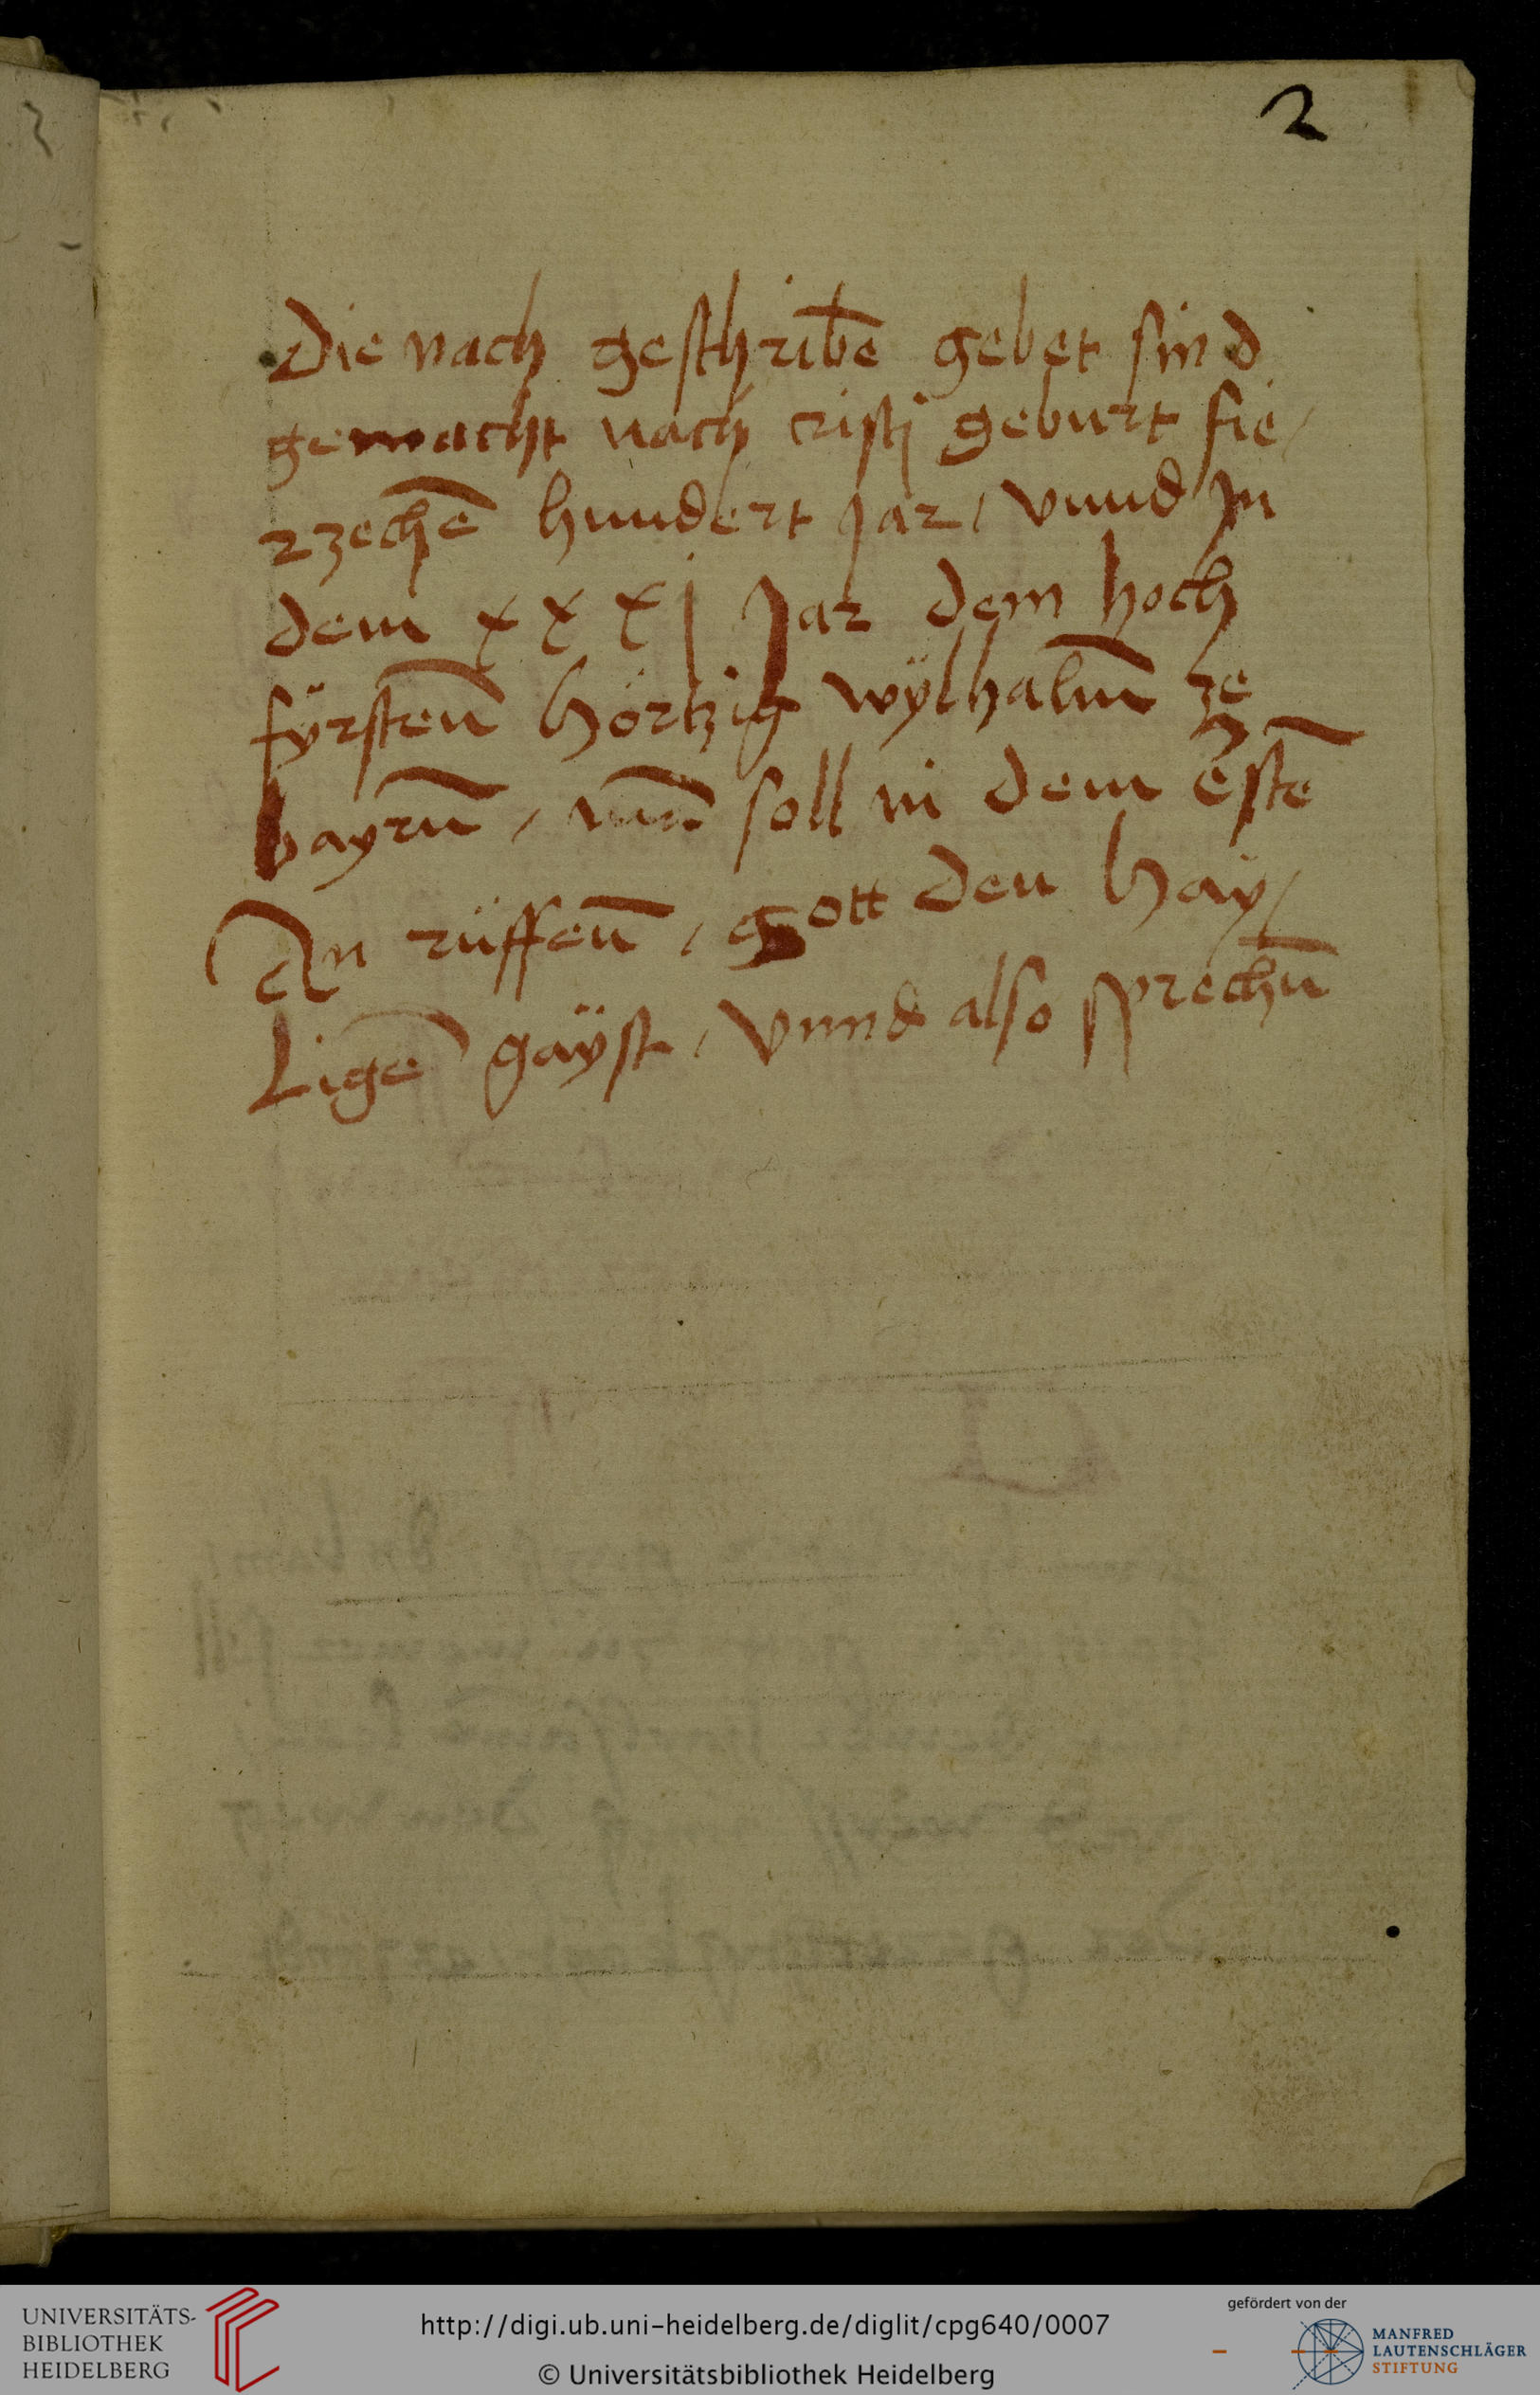 2
Die nach geschribē gebet sind
gemacht nach cristj geburt fie/
rzechē hundert Jar / vnnd Jn
dem xxxj Jar dem hoch
fÿrsten̄ hörtzig wÿlhalm̄ ze
bayrn̄ / man̄ soll in dem ērstē
An rüffen̄ / gott den haÿ/
Ligē gaÿst / Vnnd also sprechn̄
UNIVERSITÄTS-
BIBLIOTHEK
HEIDELBERG
http://digi.ub.uni-heidelberg.de/diglit/cpg640/0007
© Universitätsbibliothek Heidelberg
gefördert von der
MANFRED
LAUTENSCHLÄGER
STIFTUNG